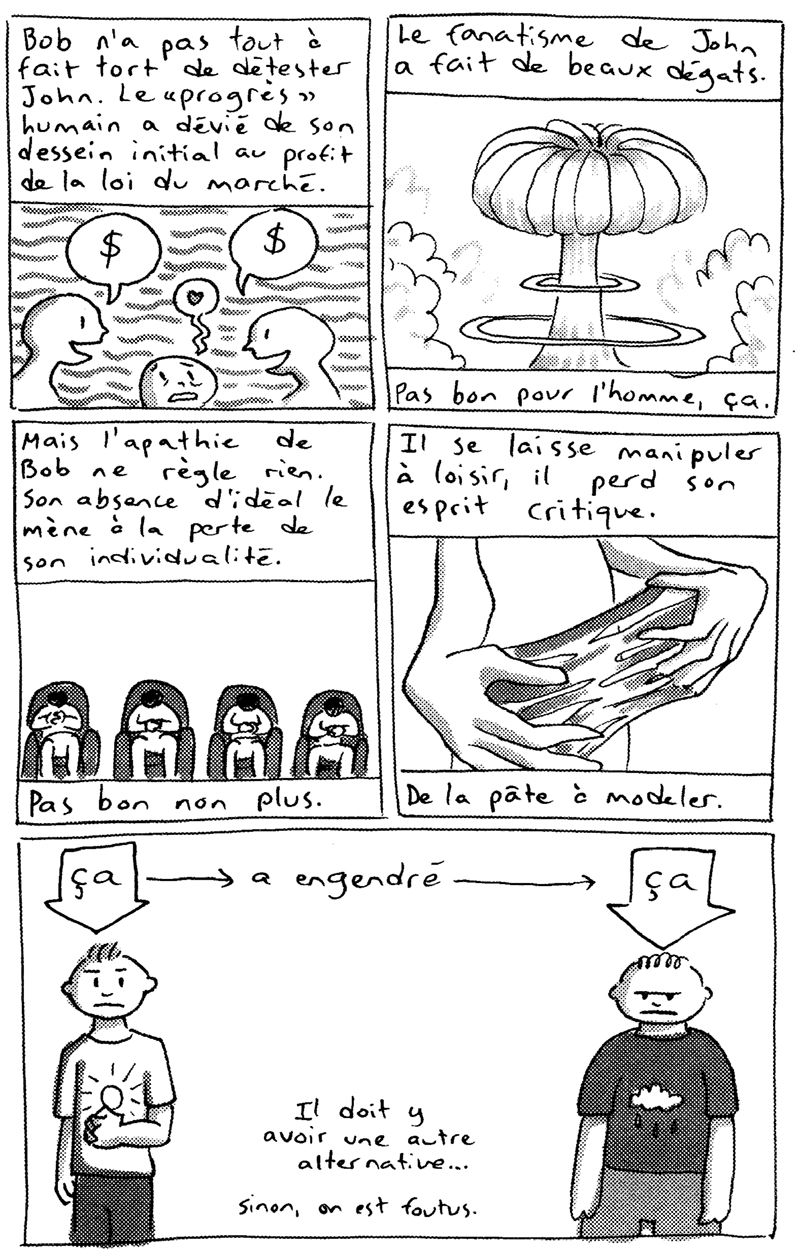 Bob n'a pas tout à
fait tort de détester
John. Le «progrès»
humain a dévié de son
dessein initial au profit
de la loi du marché.
$
$
Le fanatisme de John
a fait de beaux dégats.
Pas bon pour l'homme, ça.
Mais l'apathie de
Bob ne règle rien.
Son absence d'idéal le
mène à la perte de
son individualité.
Pas bon non plus.
Il se laisse manipuler
à loisir, il perd son
esprit critique.
De la pâte à modeler.
ça a engendré ça
Il doit y
avoir une autre
alternative...
sinon, on est foutus.